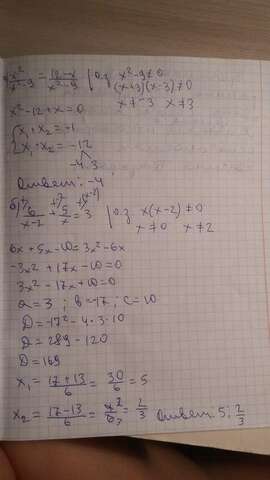 x²/x²-9 = 12-x/x²-9 | ОДЗ x²-9≠0
(x+3)(x-3)≠0
x≠-3 x≠3
x²-12+x=0
{x₁+x₂=-1
x₁·x₂=-12
-4 3
Ответ: -4
б) 6/x-2 + 5/x = 3 | x(x-2)≠0
x≠0 x≠2
6x+5x-10=3x²-6x
-3x²+17x-10=0
3x²-17x+10=0
a=3; b=-17; c=10
D=-17²-4·3·10
D=289-120
D=169
x₁=17+13/6=30/6=5
x₂=17-13/6=4²/6₃=2/3 Ответ: 5; 2/3